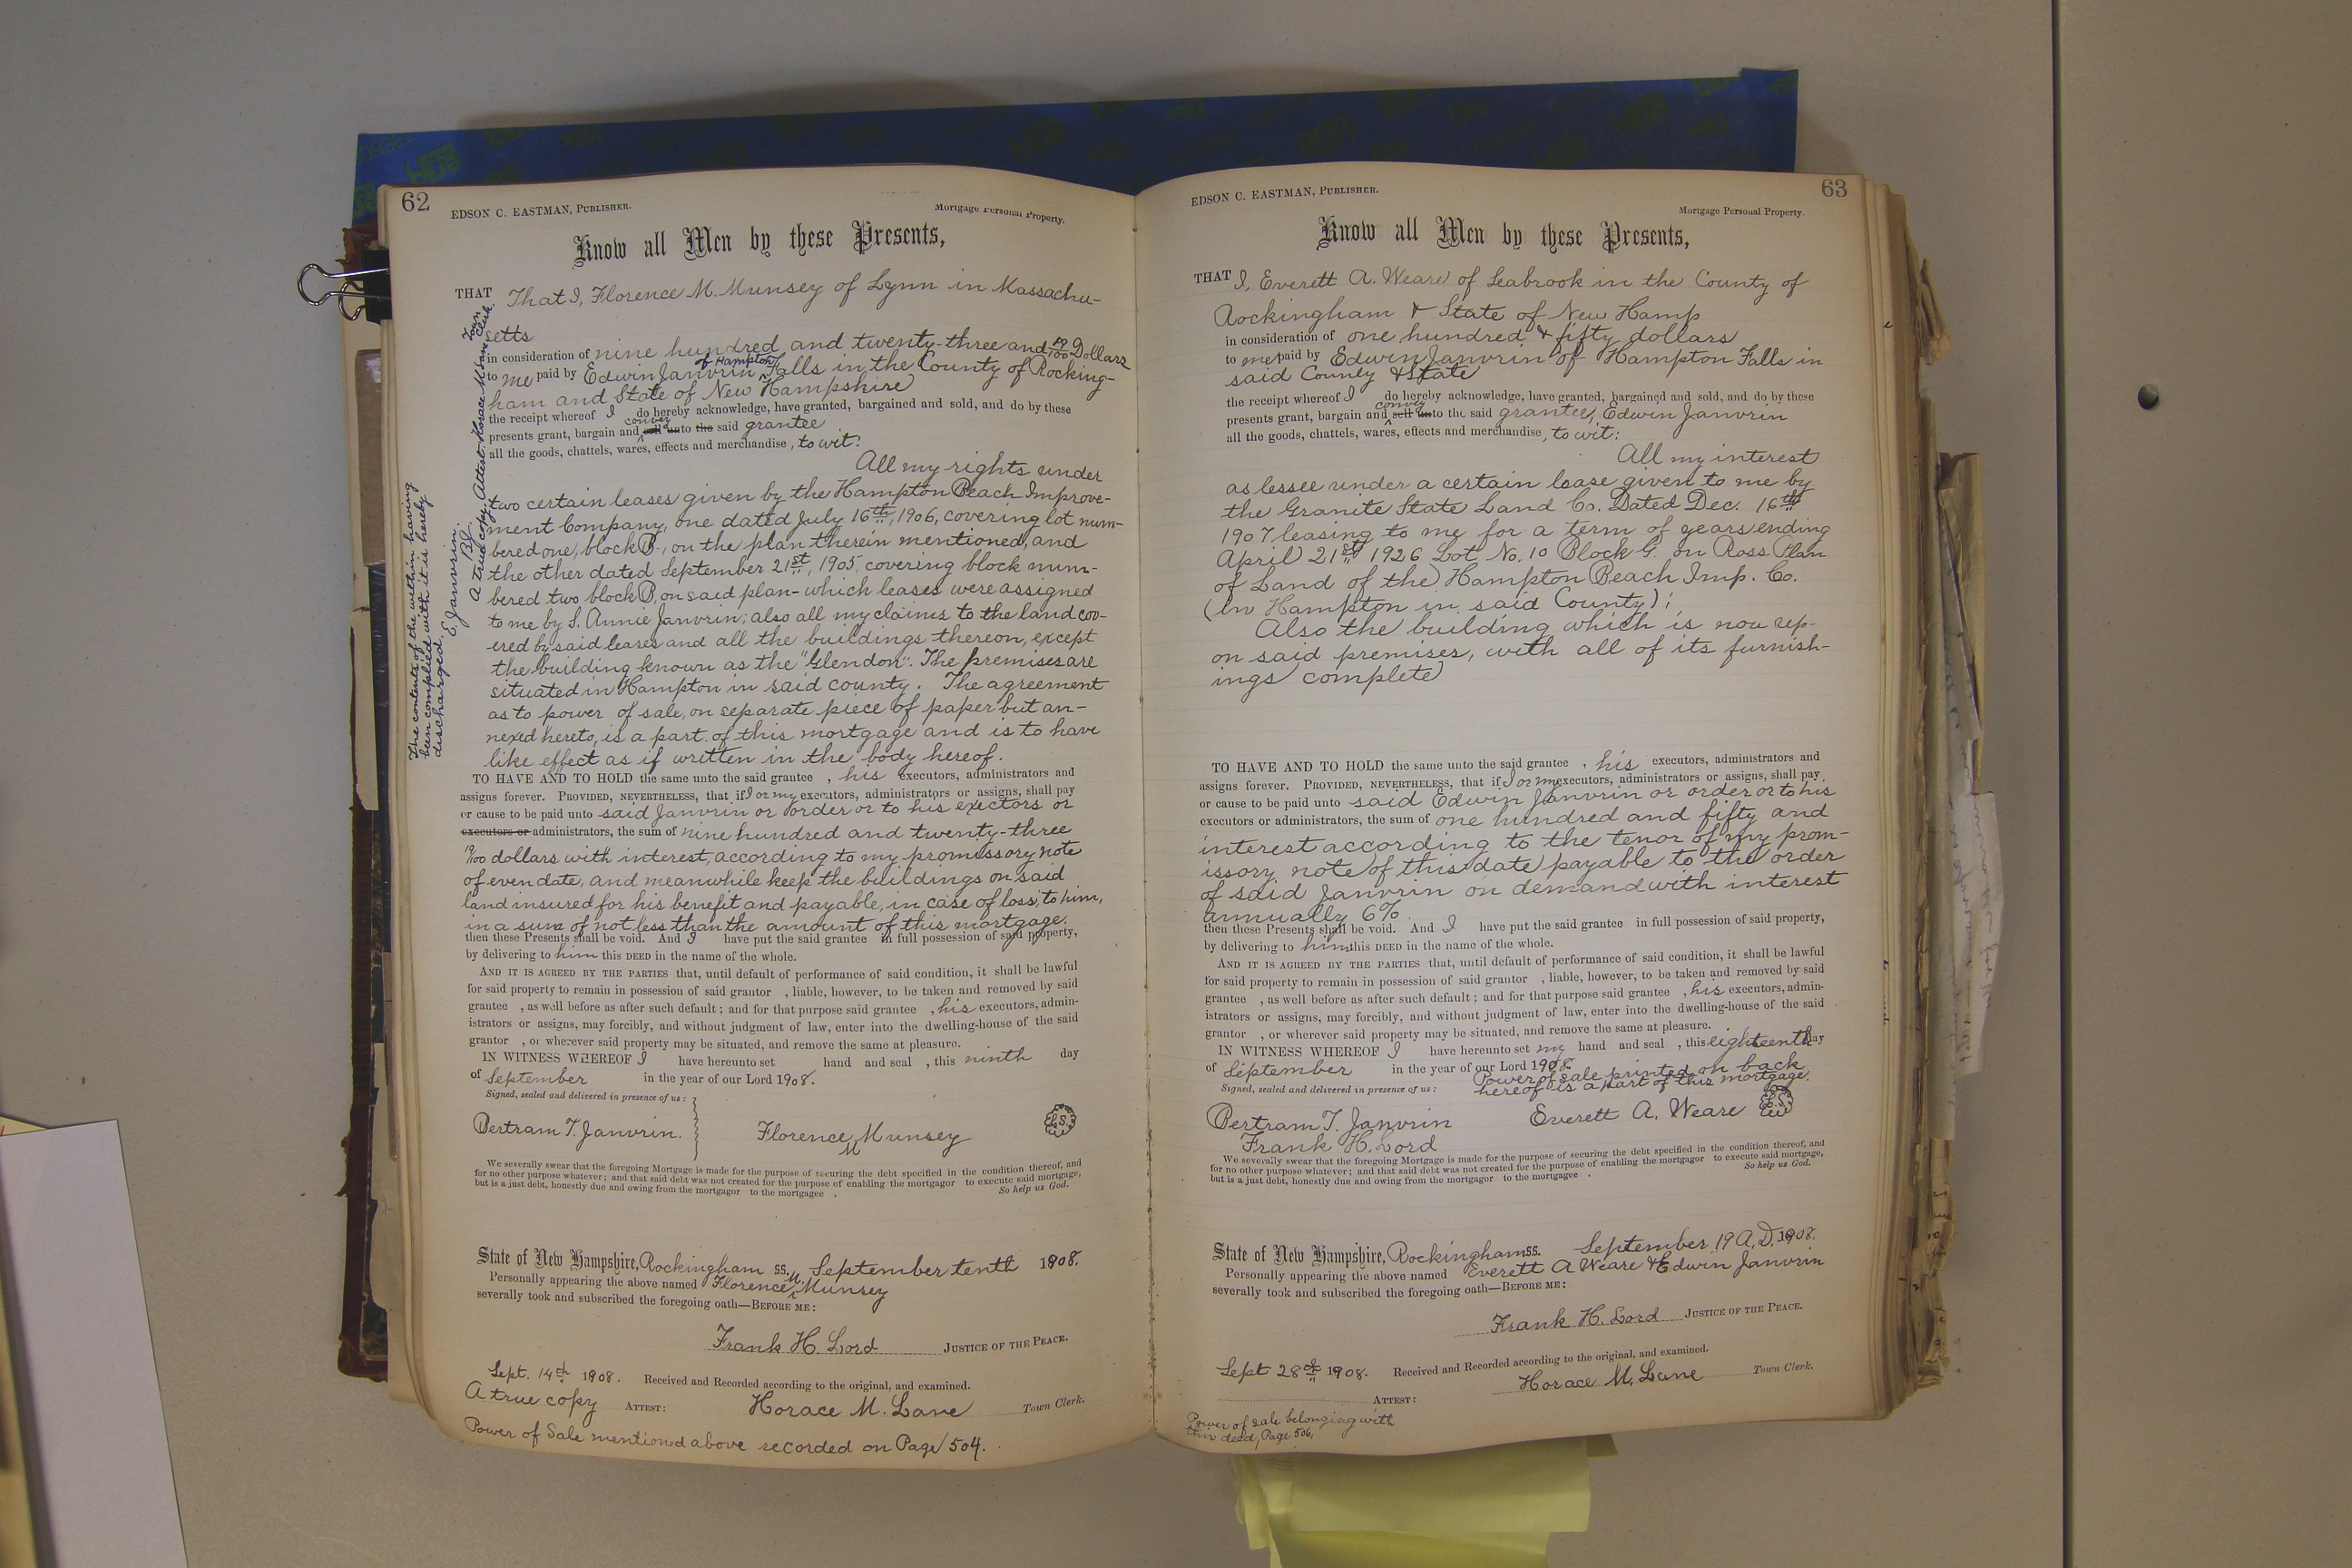 62
EDSON C. EASTMAN, PUBLISHER.
Mortgage Personal Property.
Know all Men by these Presents,
THAT That I, Florence M. Munsey of Lynn in Massachu-
setts
in consideration of nine hundred and twenty-three and 19/100 Dollars
of Hampton
to me paid by Edwin Janvrin Falls in the County of Rocking-
ham and State of New Hampshire
the receipt whereof I do hereby acknowledge, have granted, bargained and sold, and do by these
convey
presents grant, bargain and sell unto the said grantee
all the goods, chattels, wares, effects and merchandise, to wit:
All my rights under
two certain leases given by the Hampton Beach Improve-
ment Company, one dated July 16th, 1906, covering lot num-
bered one, block B, on the plan therein mentioned, and
the other dated September 21st, 1905, covering block num-
bered two block B, on said plan- which leases were assigned
to me by S. Annie Janvrin; also all my claims to the land cov-
ered by said leases and all the buildings thereon, except
the building known as the "Glendon". The premises are
situated in Hampton in said county. The agreement
as to power of sale, on separate piece of paper but an-
nexed hereto, is a part of this mortgage and is to have
like effect as if written in the body hereof.
TO HAVE AND TO HOLD the same unto the said grantee , his executors, administrators and
assigns forever. PROVIDED, NEVERTHELESS, that if I or my executors, administrators or assigns, shall pay
or cause to be paid unto said Janvrin or order or to his exectors or
executors or administrators, the sum of nine hundred and twenty-three
19/100 dollars with interest, according to my promissory note
of even date, and meanwhile keep the buildings on said
land insured for his benefit and payable, in case of loss, to him,
in a sum of not less than the amount of this mortgage.
then these Presents shall be void. And I have put the said grantee in full possession of said property,
by delivering to him this DEED in the name of the whole.
AND IT IS AGREED BY THE PARTIES that, until default of performance of said condition, it shall be lawful
for said property to remain in possession of said grantor , liable, however, to be taken and removed by said
grantee , as well before as after such default; and for that purpose said grantee , his executors, admin-
istrators or assigns, may forcibly, and without judgment of law, enter into the dwelling-house of the said
grantor , or wherever said property may be situated, and remove the same at pleasure.
IN WITNESS WHEREOF I have hereunto set hand and seal , this ninth day
of September in the year of our Lord 1908.
Signed, sealed and delivered in presence of us:
Bertram T. Janvrin. Florence M Munsey L.S.
We severally swear that the foregoing Mortgage is made for the purpose of securing the debt specified in the condition thereof, and
for no other purpose whatever; and that said debt was not created for the purpose of enabling the mortgagor to execute said mortgage,
but is a just debt, honestly due and owing from the mortgagor to the mortgagee . So help us God.
State of New Hampshire, Rockingham ss. September tenth 1908.
Personally appearing the above named Florence M. Munsey
severally took and subscribed the foregoing oath—BEFORE ME:
Frank H. Lord JUSTICE OF THE PEACE.
Sept. 14th 1908. Received and Recorded according to the original, and examined.
A true copy ATTEST: Horace M. Lane Town Clerk.
Power of Sale mentioned above recorded on Page 504.
The contents of the within having
been complied with it is hereby
discharged.
E. Janvrin.
A true copy, Attest: Horace M. Lane Town Clerk.
63
EDSON C. EASTMAN, PUBLISHER.
Mortgage Personal Property.
Know all Men by these Presents,
THAT I, Everett A. Weare of Seabrook in the County of
Rockingham & State of New Hamp
in consideration of one hundred & fifty dollars
to me paid by Edwin Janvrin of Hampton Falls in
said County & State
the receipt whereof I do hereby acknowledge, have granted, bargained and sold, and do by these
convey
presents grant, bargain and sell unto the said grantee, Edwin Janvrin
all the goods, chattels, wares, effects and merchandise, to wit:
All my interest
as lessee under a certain lease given to me by
the Granite State Land Co. Dated Dec. 16th
1907 leasing to me for a term of years ending
April 21st 1926 Lot No. 10 Block G. on Ross Plan
of Land of the Hampton Beach Imp. Co.
(In Hampton in said County);
Also the building which is now up-
on said premises, with all of its furnish-
ings complete
TO HAVE AND TO HOLD the same unto the said grantee , his executors, administrators and
assigns forever. PROVIDED, NEVERTHELESS, that if I or my executors, administrators or assigns, shall pay
or cause to be paid unto said Edwin Janvrin or order or to his
executors or administrators, the sum of one hundred and fifty and
interest according to the tenor of my prom-
issory note of this date payable to the order
of said Janvrin on demand with interest
annually 6%
then these Presents shall be void. And I have put the said grantee in full possession of said property,
by delivering to him this DEED in the name of the whole.
AND IT IS AGREED BY THE PARTIES that, until default of performance of said condition, it shall be lawful
for said property to remain in possession of said grantor , liable, however, to be taken and removed by said
grantee , as well before as after such default; and for that purpose said grantee , his executors, admin-
istrators or assigns, may forcibly, and without judgment of law, enter into the dwelling-house of the said
grantor , or wherever said property may be situated, and remove the same at pleasure.
IN WITNESS WHEREOF I have hereunto set my hand and seal , this eighteenth day
of September in the year of our Lord 1908.
Power of sale printed on back
Signed, sealed and delivered in presence of us: hereof is a part of this mortgage.
Bertram T. Janvrin Everett A. Weare L.S.
Frank H. Lord
We severally swear that the foregoing Mortgage is made for the purpose of securing the debt specified in the condition thereof, and
for no other purpose whatever; and that said debt was not created for the purpose of enabling the mortgagor to execute said mortgage,
but is a just debt, honestly due and owing from the mortgagor to the mortgagee . So help us God.
State of New Hampshire, Rockingham ss. September 19 A.D. 1908.
Personally appearing the above named Everett A Weare & Edwin Janvrin
severally took and subscribed the foregoing oath—BEFORE ME:
Frank H. Lord JUSTICE OF THE PEACE.
Sept 28th 1908. Received and Recorded according to the original, and examined.
ATTEST: Horace M. Lane Town Clerk.
Power of sale belonging with
this deed, Page 506.